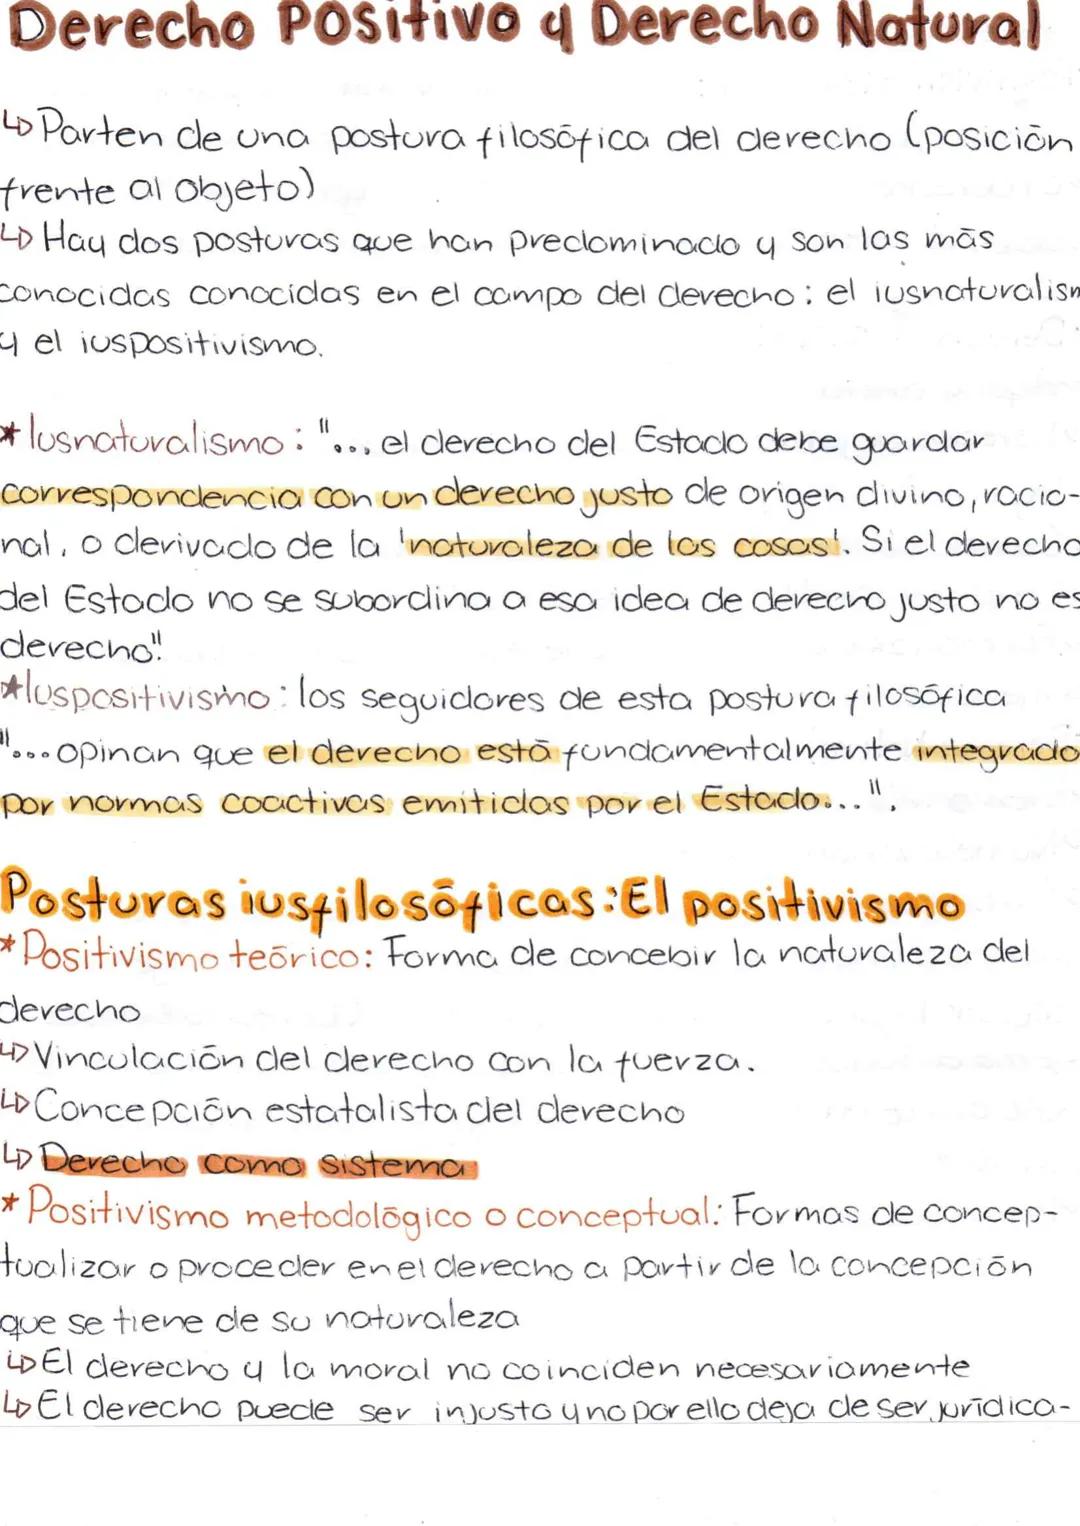 Derecho Positivo y Derecho Natural
↳ Parten de una postura filosófica del derecho (posición
frente al objeto)
↳ Hay dos posturas que han predominado y son las más
conocidas conocidas en el campo del derecho: el iusnaturalism
y el iuspositivismo.
* Iusnaturalismo: "... el derecho del Estado debe guardar
correspondencia con un derecho justo de origen divino, racio-
nal, o derivado de la 'naturaleza de las cosas'. Si el derecho
del Estado no se subordina a esa idea de derecho justo no es
derecho".
* Iuspositivismo: los seguidores de esta postura filosófica
"... opinan que el derecho está fundamentalmente integrado
por normas coactivas emitidas por el Estado...".
Posturas iusfilosóficas: El positivismo
* Positivismo teórico: Forma de concebir la naturaleza del
derecho
↳ Vinculación del derecho con la fuerza.
↳ Concepción estatalista del derecho
↳ Derecho como sistema
* Positivismo metodológico o conceptual: Formas de concep-
tualizar o proceder en el derecho a partir de la concepción
que se tiene de su naturaleza
↳ El derecho y la moral no coinciden necesariamente
↳ El derecho puede ser injusto y no por ello deja de ser jurídica-